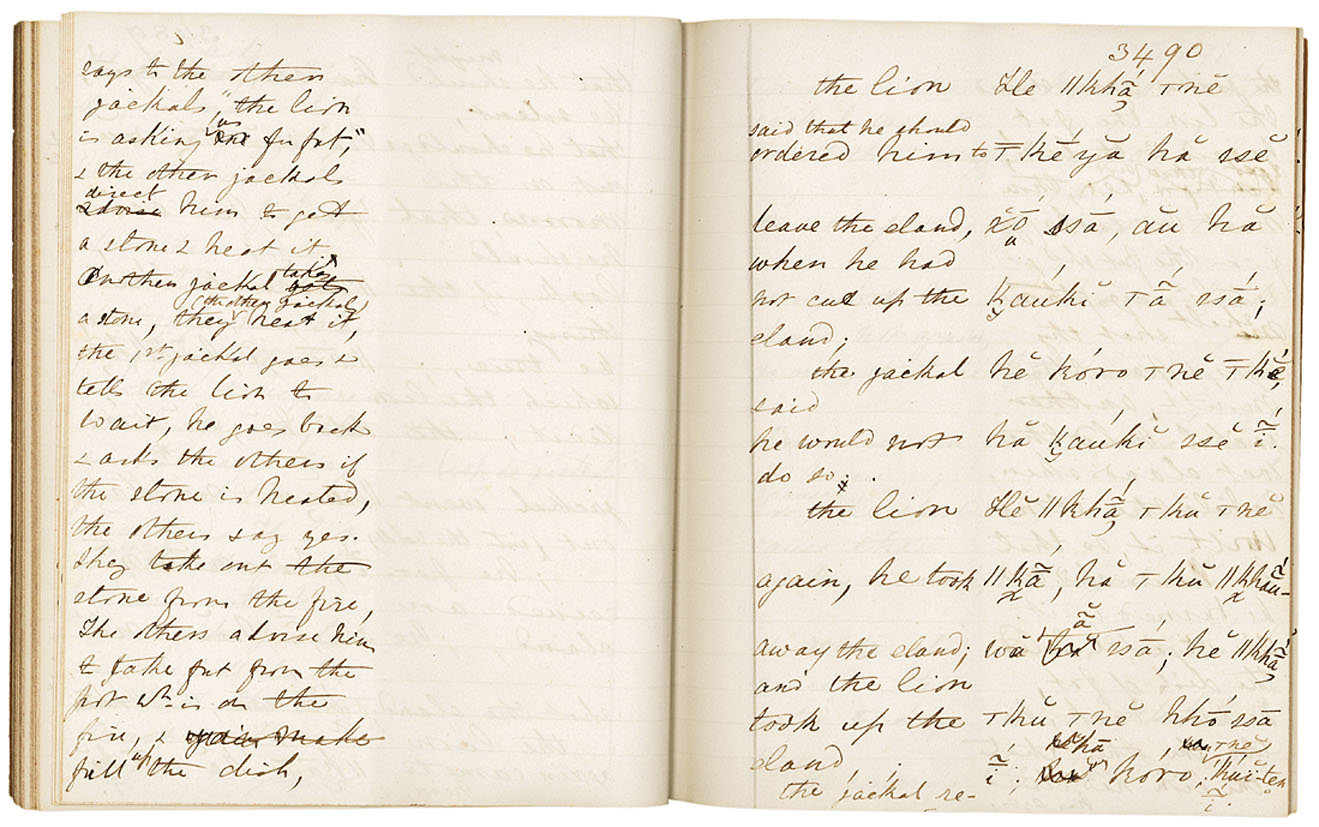 says to the other
jackals, "the lion
is asking us for fat,"
& the other jackals
direct
advise him to get
a stone & heat it
Another jackal takes
a stone, they (the other jackals) heat it,
the 1st jackal goes &
tells the lion to
wait, he goes back
& asks the others if
the stone is heated,
the others say yes.
they take out the
stone from the fire,
The others advise him
to take fat from the
pot wh. is on the
fire, &
fill up the dish,
3490
the lion Hĕ ǁkhã́ ⊤nĕ
said that he should
ordered him to ⊤ké yă hă ssĕ
leave the eland, ssā, ău hă
when he had
not cut up the ḵauḱi ⊤ā́ ssá;
eland;
the jackal hĕ kóro ⊤nĕ ⊤kĕ́,
said
he would not hă ḵauḱi ssĕ ĩ́.
do so.
the lion Hĕ ǁkhã́, ⊤kŭ ⊤nĕ
again, he took hă ⊤kŭ
away the eland; ssā; hĕ ǁkhã́,
and the lion
took up the ⊤kŭ ⊤nĕ hhó ssā
eland ĩ́; kóro
the jackal re-